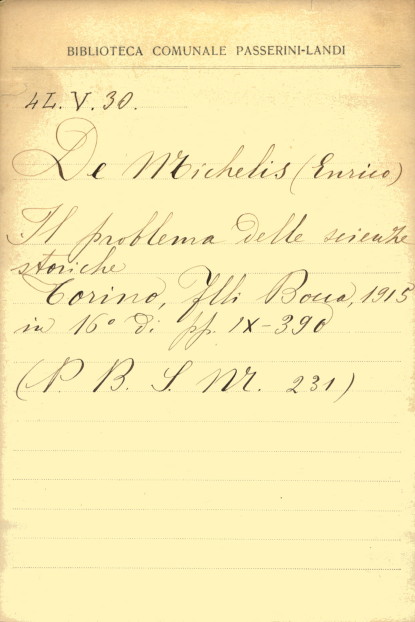 BIBLIOTECA COMUNALE PASSERINI-LANDI
4L. V. 30.
De Michelis (Enrico)
Il problema delle scienze
storiche
Torino, Flli Bocca, 1915
in 16° di pp. IX-390
(P. B. S. M. 231)